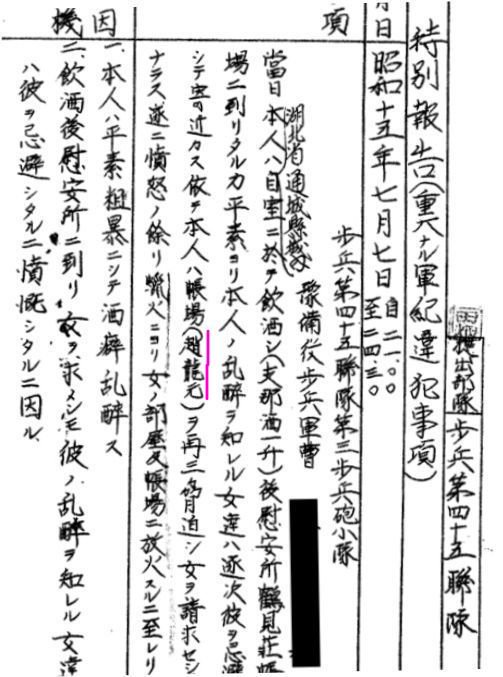 提出部隊 歩兵第四十五聯隊
特別報告(重大ナル軍紀違犯事項)
月日 昭和十五年七月七日 自二一・〇〇 至二四・三〇
項
歩兵第四十五聯隊第三歩兵砲小隊
豫備役歩兵軍曹
湖北省通城縣城内
當日本人ハ自室ニ於テ飲酒シ(支那酒一升)後慰安所鶴見荘帳
場ニ到リタルカ平素ヨリ本人ノ乱酔ヲ知レル女達ハ逐次彼ヲ忌避
シテ寄リ近カス依テ本人ハ帳場(趙龍元)ヲ再三脅迫シ女ヲ請求セシ
ナラス遂ニ憤怒ノ余リ蠟火ニヨリ女ノ部屋及帳場ニ放火スルニ至レリ
因
機
一、本人ハ平素粗暴ニシテ酒癖乱酔ス
二、飲酒後慰安所ニ到リ女ヲ求メシモ彼ノ乱酔ヲ知レル女達
ハ彼ヲ忌避シタルニ憤慨シタルニ因ル